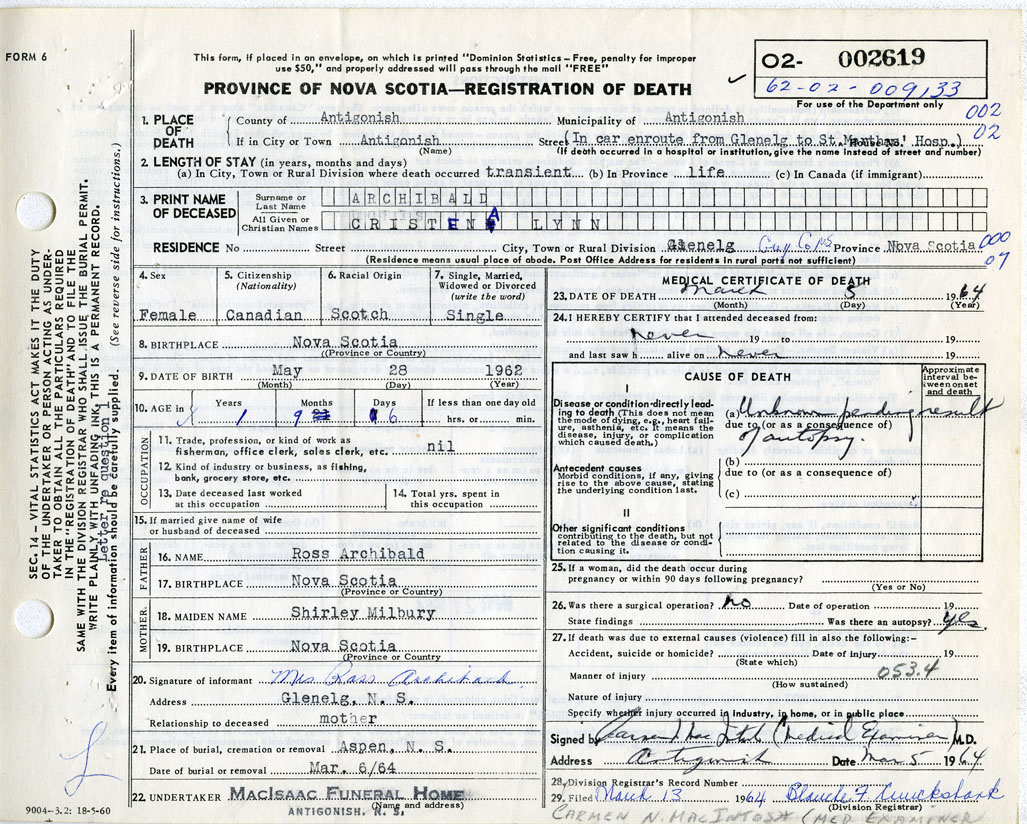 FORM 6
This form, if placed in an envelope, on which is printed "Dominion Statistics - Free, penalty for improper
use $50," and properly addressed will pass through the mail "FREE"
PROVINCE OF NOVA SCOTIA—REGISTRATION OF DEATH
O2- 002619
62-02-009133
For use of the Department only
002
02
1. PLACE OF DEATH
County of Antigonish Municipality of Antigonish
If in City or Town Antigonish Street (In car enroute from Glenelg to St. Marthas' Hosp.)
(Name) (If death occurred in a hospital or institution, give the name instead of street and number)
2. LENGTH OF STAY (in years, months and days)
(a) In City, Town or Rural Division where death occurred transient (b) In Province life (c) In Canada (if immigrant)
3. PRINT NAME OF DECEASED
Surname or Last Name ARCHIBALD
All Given or Christian Names CRISTENA LYNN
RESIDENCE No Street City, Town or Rural Division Glenelg Guy Co NS Province Nova Scotia
000
07
(Residence means usual place of abode. Post Office Address for residents in rural parts not sufficient)
4. Sex
Female
5. Citizenship
(Nationality)
Canadian
6. Racial Origin
Scotch
7. Single, Married,
Widowed or Divorced
(write the word)
Single
8. BIRTHPLACE Nova Scotia
(Province or Country)
9. DATE OF BIRTH May 28 1962
(Month) (Day) (Year)
10. AGE in Years Months Days If less than one day old
1 9 6 hrs. or min.
OCCUPATION
11. Trade, profession, or kind of work as
fisherman, office clerk, sales clerk, etc. nil
12. Kind of industry or business, as fishing,
bank, grocery store, etc.
13. Date deceased last worked
at this occupation
14. Total yrs. spent in
this occupation
15. If married give name of wife
or husband of deceased
FATHER
16. NAME Ross Archibald
17. BIRTHPLACE Nova Scotia
(Province or Country)
MOTHER
18. MAIDEN NAME Shirley Milbury
19. BIRTHPLACE Nova Scotia
(Province or Country
20. Signature of informant Mrs Ross Archibald
Address Glenelg, N. S.
Relationship to deceased mother
21. Place of burial, cremation or removal Aspen, N. S.
Date of burial or removal Mar. 6/64
22. UNDERTAKER MACISAAC FUNERAL HOME
(Name and address)
ANTIGONISH, N. S.
MEDICAL CERTIFICATE OF DEATH
23. DATE OF DEATH March 5 1964
(Month) (Day) (Year)
24. I HEREBY CERTIFY that I attended deceased from:
Never 19 to 19
and last saw h alive on never 19
CAUSE OF DEATH
Approximate
interval be-
tween onset
and death
I
Disease or condition directly lead-
ing to death (This does not mean
the mode of dying, e.g., heart fail-
ure, asthenia, etc. It means the
disease, injury, or complication
which caused death.)
(a) Unknown pending result
due to (or as a consequence of)
of autopsy.
Antecedent causes
Morbid conditions, if any, giving
rise to the above cause, stating
the underlying condition last.
(b)
due to (or as a consequence of)
(c)
II
Other significant conditions
contributing to the death, but not
related to the disease or condi-
tion causing it.
25. If a woman, did the death occur during
pregnancy or within 90 days following pregnancy?
(Yes or No)
26. Was there a surgical operation? No Date of operation 19
State findings Was there an autopsy? Yes.
27. If death was due to external causes (violence) fill in also the following:-
Accident, suicide or homicide? Date of injury 19
(State which)
053.4
Manner of injury
(How sustained)
Nature of injury
Specify whether injury occurred in industry, in home, or in public place
Signed by Carmen N Mac Intosh (Medical Examiner) M.D.
Address Antigonish Date Mar 5 1964
28. Division Registrar's Record Number
29. Filed March 13 1964 Blanche F Cruickshank
(Division Registrar)
CARMEN N. MACINTOSH (MED EXAMINER
SEC. 14 — VITAL STATISTICS ACT MAKES IT THE DUTY
OF THE UNDERTAKER OR PERSON ACTING AS UNDER-
TAKER TO OBTAIN ALL THE PARTICULARS REQUIRED
IN THE "REGISTRATION OF DEATH" AND TO FILE THE
SAME WITH THE DIVISION REGISTRAR WHO SHALL ISSUE THE BURIAL PERMIT.
WRITE PLAINLY WITH UNFADING INK, THIS IS A PERMANENT RECORD.
Letter re question 1
Every item of information should be carefully supplied. (See reverse side for instructions.)
9004-3.2: 18-5-60